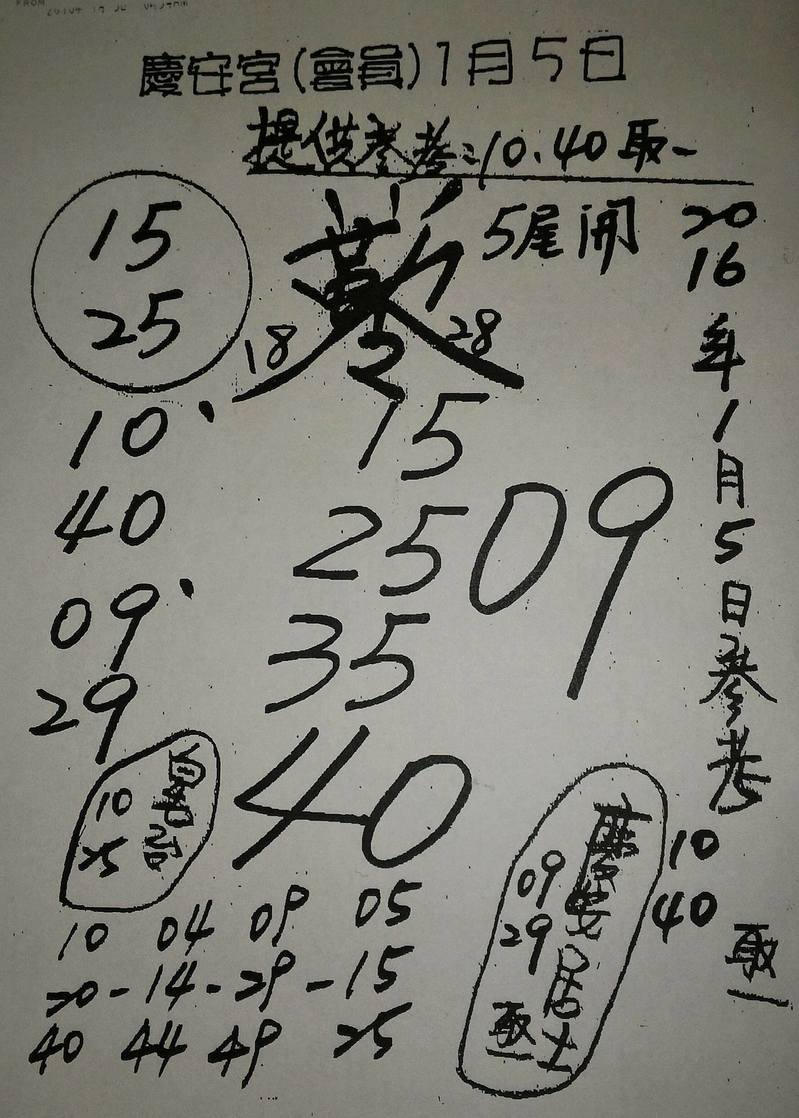 慶安宮(會員)1月5日
提供參考:10.40取一
15
25
5尾開
18
28
2016年1月5日參考
10
40
取一
10
40
09
29
15
25
35
40
09
10
25
慶安居士
09
29
取一
10 04 09 05
20-14-29-15
40 44 49 25